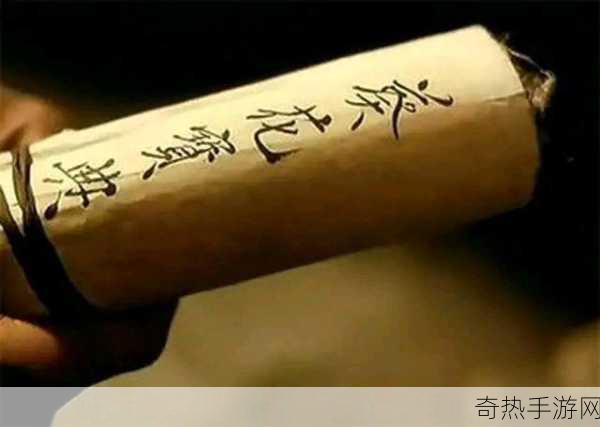 葵花寶典
奇热手游网